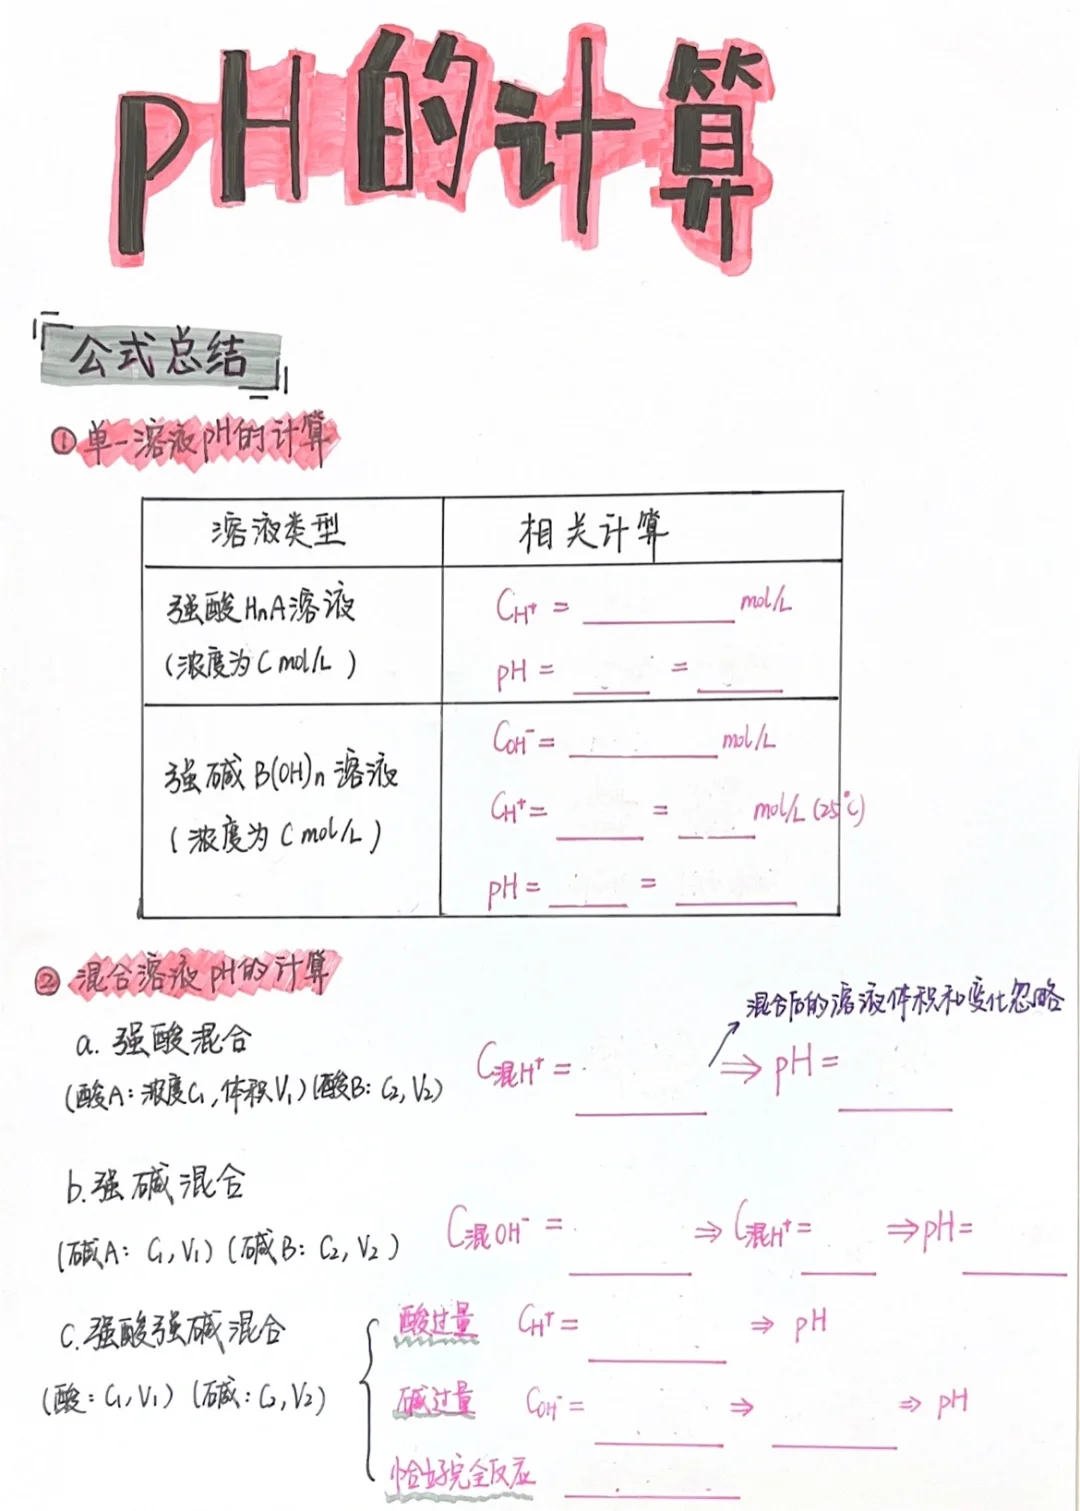 pH的计算
公式总结
①单一溶液pH的计算
溶液类型 相关计算
强酸HnA溶液
(浓度为C mol/L)
CH⁺ = ______ mol/L
pH = ___ = ___
强碱B(OH)n溶液
(浓度为C mol/L)
COH⁻ = ______ mol/L
CH⁺ = ___ = ___ mol/L (25℃)
pH = ___ = ___
②混合溶液pH的计算
混合后的溶液体积和变化忽略
a. 强酸混合
(酸A:浓度C₁,体积V₁)(酸B:C₂,V₂)
C混H⁺ = ______ ⇒ pH = ______
b. 强碱混合
(碱A:C₁,V₁)(碱B:C₂,V₂)
C混OH⁻ = ______ ⇒ C混H⁺ = ___ ⇒ pH = ___
c. 强酸强碱混合
(酸:C₁,V₁)(碱:C₂,V₂)
酸过量 CH⁺ = ______ ⇒ pH
碱过量 COH⁻ = ______ ⇒ ______ ⇒ pH
恰好完全反应 ______